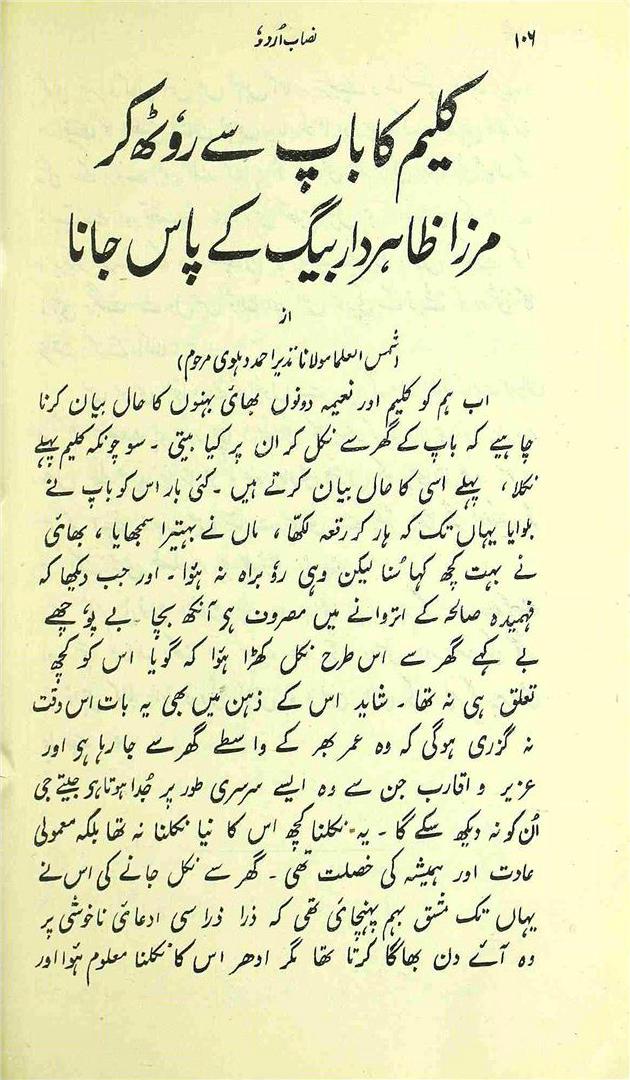 ۱۰۶ نصاب اُردو
کلیم کا باپ سے روٹھ کر
مرزا ظاہر دار بیگ کے پاس جانا
از
(شمس العلما مولانا نذیر احمد دہلوی مرحوم)
اب ہم کو کلیم اور نعیمہ دونوں بھائی بہنوں کا حال بیان کرنا
چاہیے کہ باپ کے گھر سے نکل کر ان پر کیا بیتی ۔ سو چونکہ کلیم پہلے
نکلا ، پہلے اسی کا حال بیان کرتے ہیں ۔ کئی بار اس کو باپ نے
بلوایا یہاں تک کہ ہار کر رقعہ لکھّا ، ماں نے بہتیرا سمجھایا ، بھائی
نے بہت کچھ کہا سُنا لیکن وہی رؤ براہ نہ ہؤا ۔ اور جب دیکھا کہ
فہمیدہ صالحہ کے اتروانے میں مصروف ہی آنکھ بچا بے پوُچھے
بے کہے گھر سے اس طرح نکل کھڑا ہؤا کہ گویا اس کو کچھ
تعلق ہی نہ تھا ۔ شاید اس کے ذہن میں بھی یہ بات اس وقت
نہ گزری ہوگی کہ وہ عمر بھر کے واسطے گھر سے جا رہا ہی اور
عزیر و اقارب جن سے وہ ایسے سرسری طور پر جُدا ہوتا ہی جیتے جی
اُن کو نہ دیکھ سکے گا ۔ یہ نکلنا کچھ اس کا نیا نکلنا نہ تھا بلکہ معمولی
عادت اور ہمیشہ کی خصلت تھی ۔ گھر سے نکل جانے کی اس نے
یہاں تک مشق بہم پہنچائی تھی کہ ذرا ذرا سی ادعائی ناخوشی پر
وہ آئے دن بھاگا کرتا تھا مگر ادھر اس کا نکلنا معلوم ہؤا اور